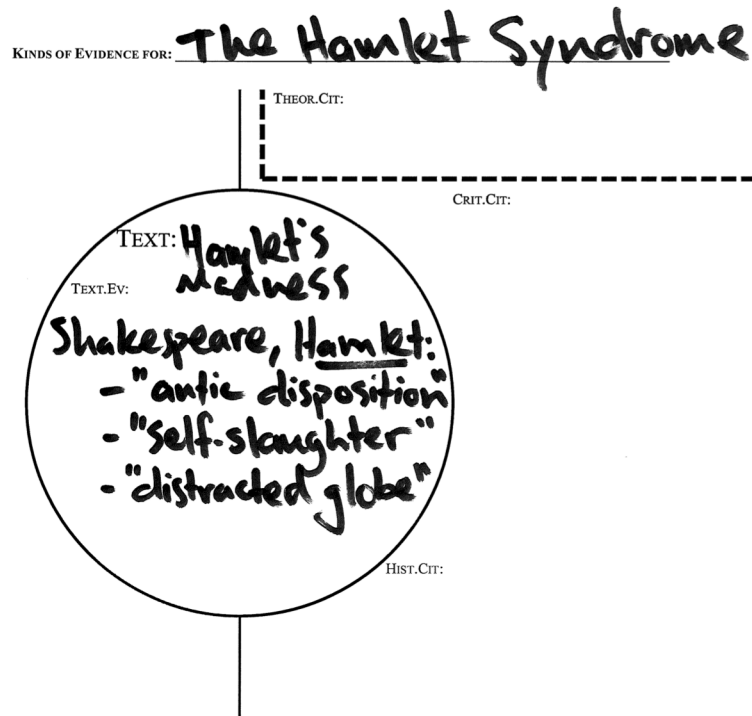 KINDS OF EVIDENCE FOR: The Hamlet Syndrome
THEOR.CIT:
CRIT.CIT:
TEXT: Hamlet's
Madness
TEXT.EV:
Shakespeare, Hamlet:
- "antic disposition"
- "self-slaughter"
- "distracted globe"
HIST.CIT: